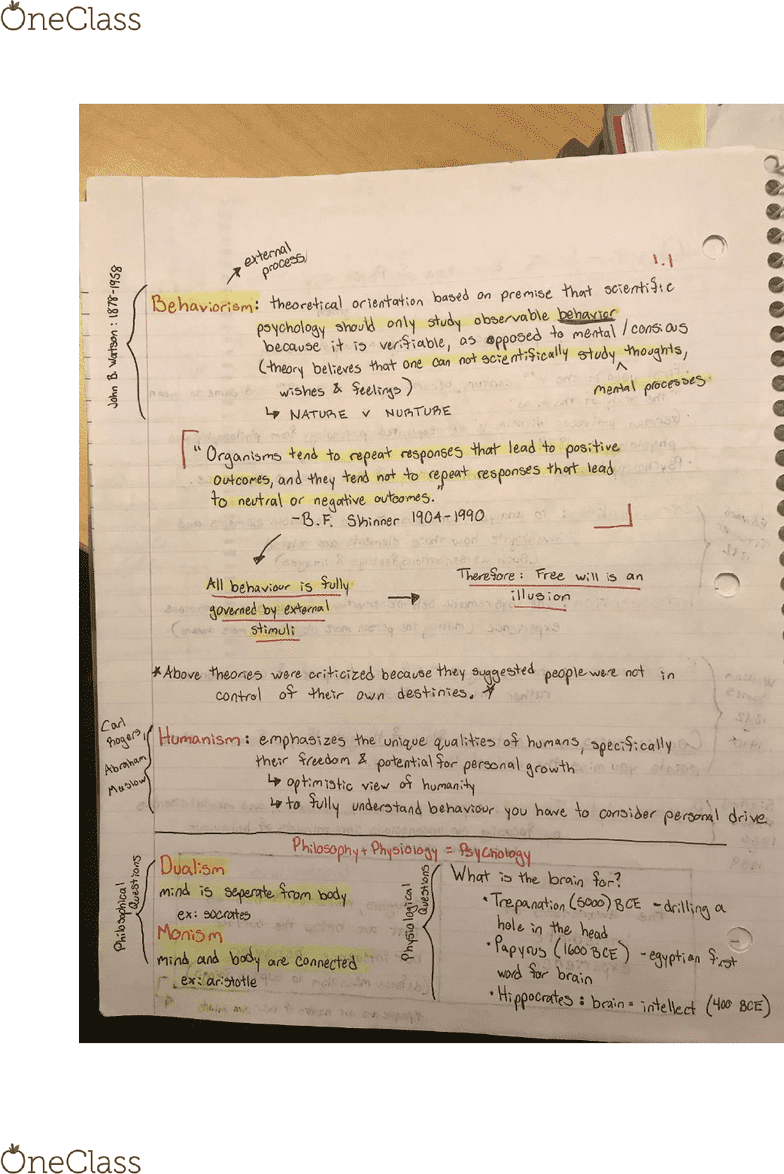 OneClass
external
process
1.1
John B. Watson: 1878-1958
Behaviorism: theoretical orientation based on premise that scientific
psychology should only study observable behavior
because it is verifiable, as opposed to mental / consious
(theory believes that one can not scientifically study ^ thoughts,
mental processes.
wishes & feelings)
↳ NATURE v NURTURE
"Organisms tend to repeat responses that lead to positive
outcomes, and they tend not to repeat responses that lead
to neutral or negative outcomes."
-B.F. Skinner 1904-1990
All behaviour is fully
governed by external
stimuli
→ Therefore: Free will is an
illusion
*Above theories were criticized because they suggested people were not in
control of their own destinies. *
Carl
Rogers,
Abraham
Maslow
Humanism: emphasizes the unique qualities of humans, specifically
their freedom & potential for personal growth
↳ optimistic view of humanity
↳ to fully understand behaviour you have to consider personal drive
Philosophy + Physiology = Psychology
Philosophical
Questions
Dualism
mind is seperate from body
ex: socrates
Monism
mind and body are connected
ex: aristotle
Physiological
Questions
What is the brain for?
• Trepanation (5000) BCE - drilling a
hole in the head
• Papyrus (1600 BCE) - egyptian first
word for brain
• Hippocrates: brain = intellect (400 BCE)
OneClass